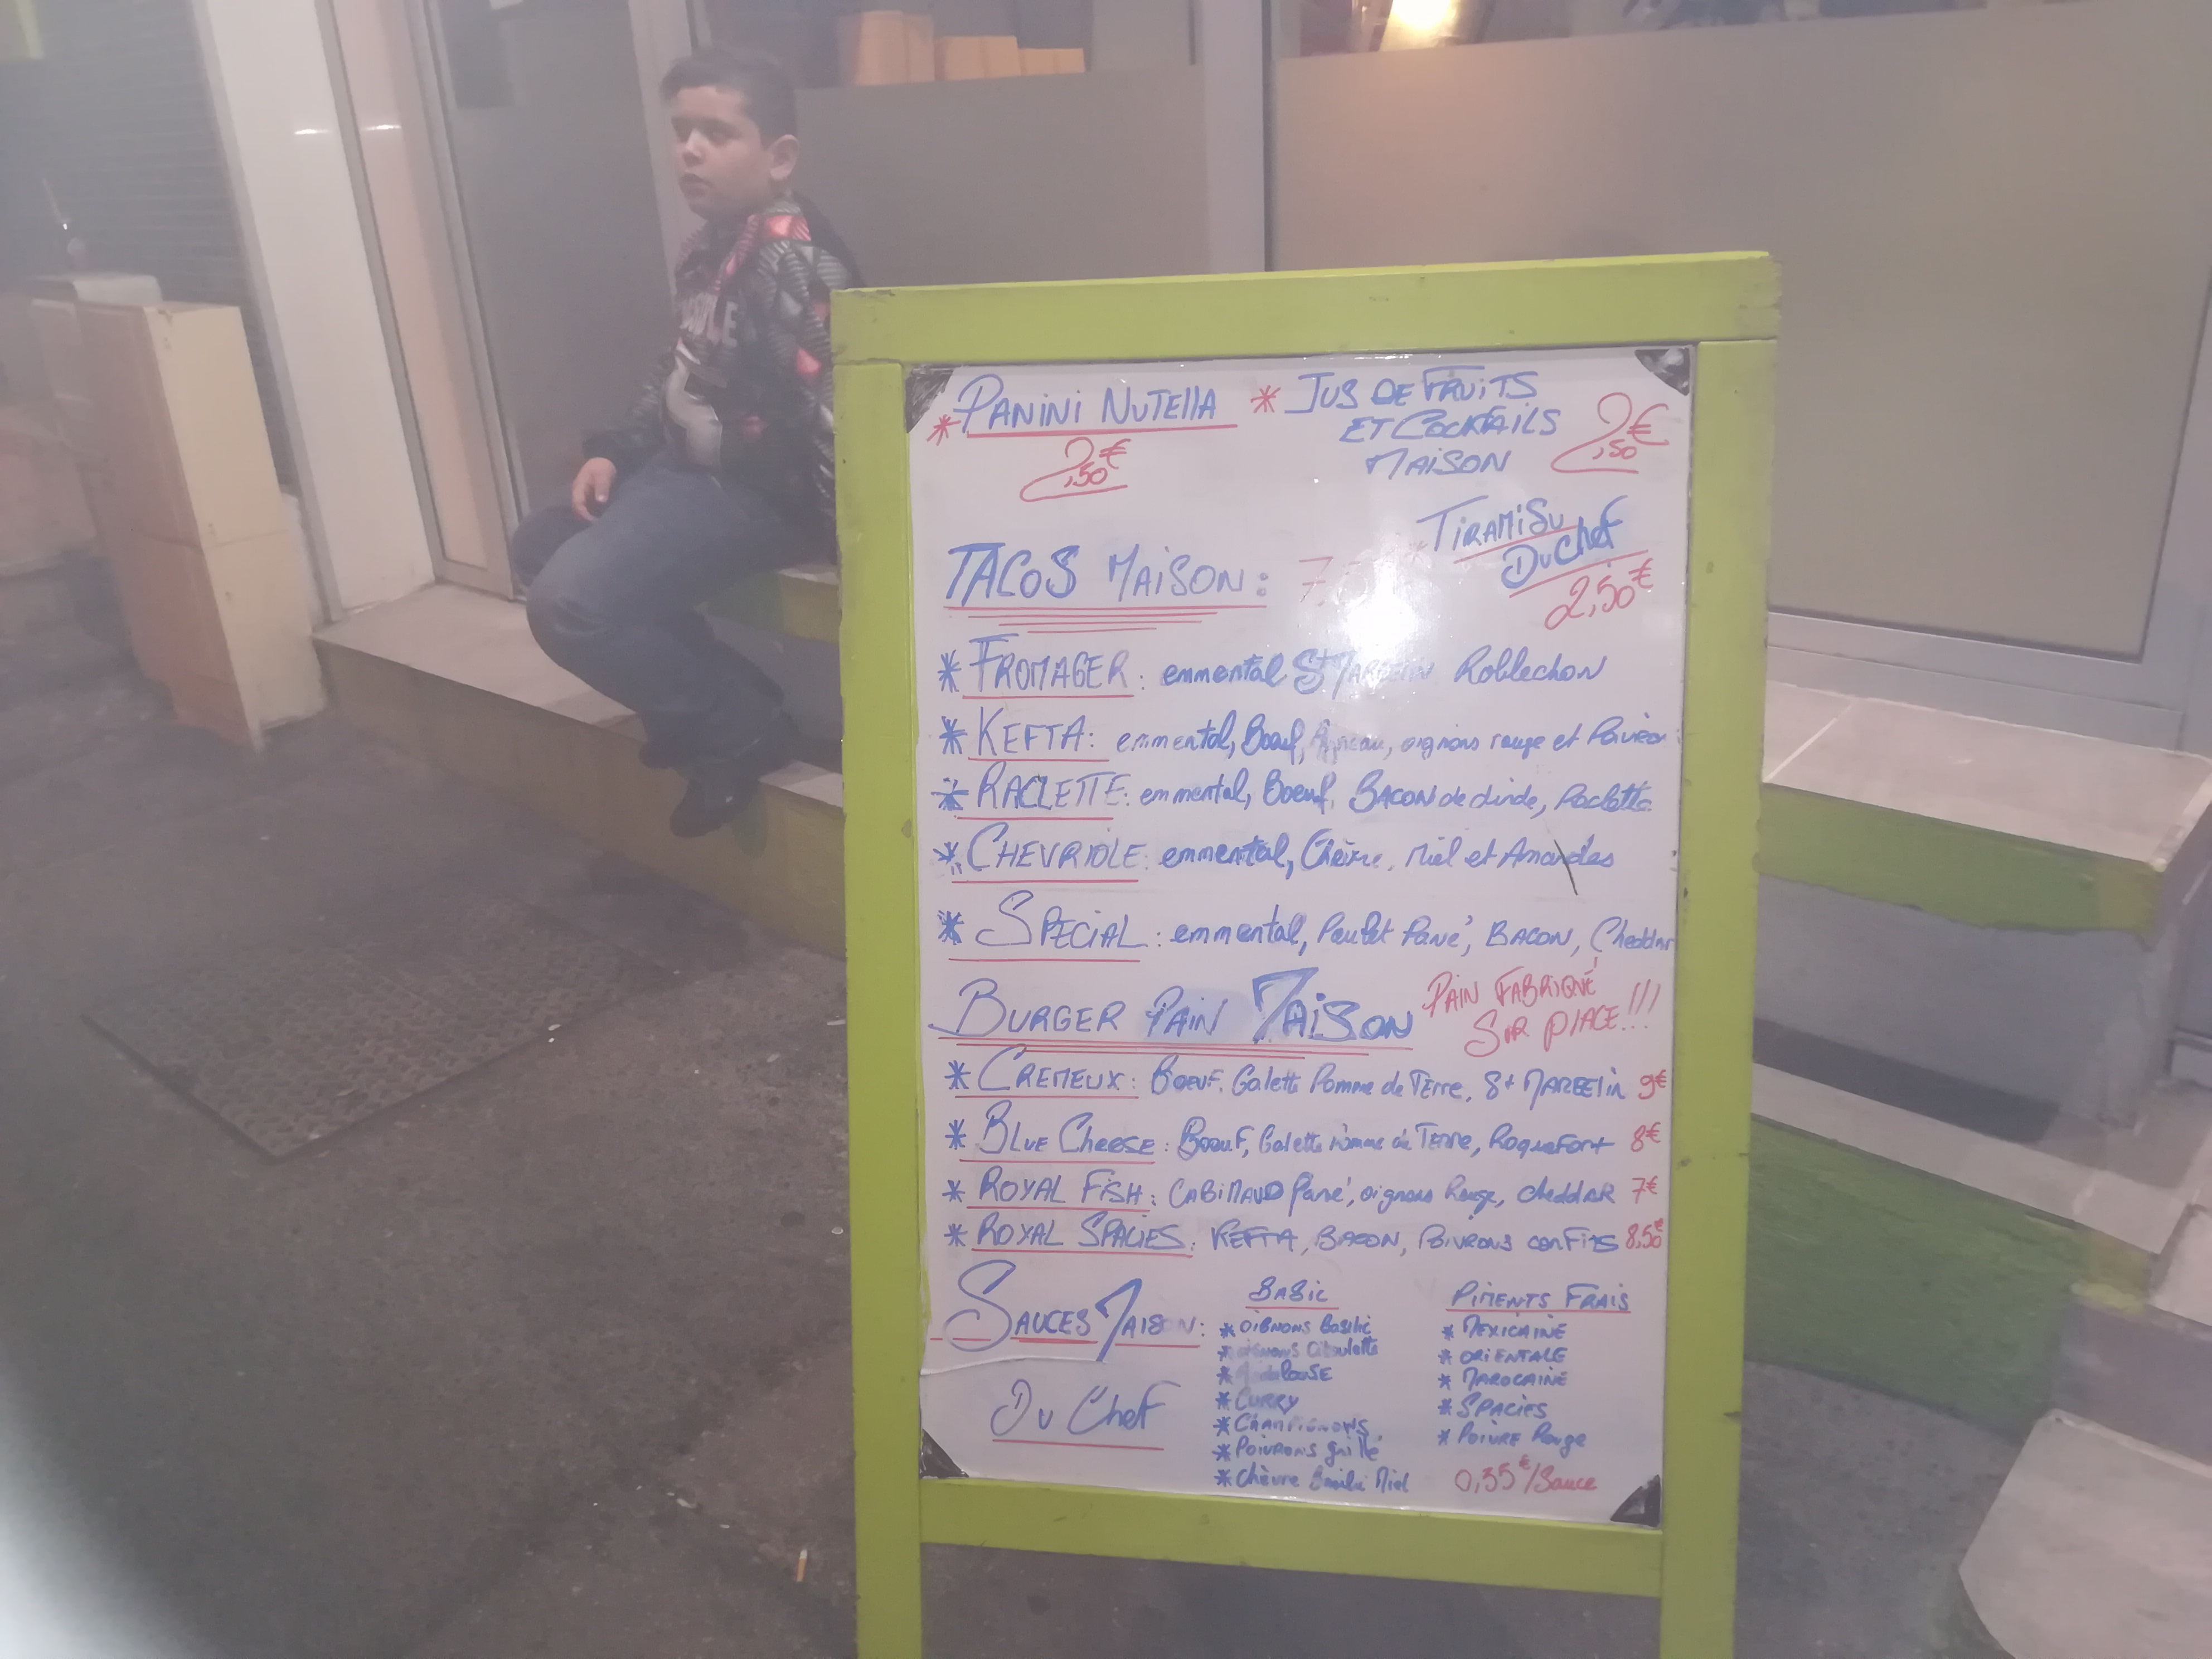 * PANINI NUTELLA
2,50€
* JUS DE FRUITS
ET COCKTAILS
MAISON
2,50€
* TIRAMISU
DU CHEF
2,50€
TACOS MAISON:
* FROMAGER: emmental St Roblechon
* KEFTA: emmental, Boeuf, Agneau, oignons rouge et
* RACLETTE: emmental, Boeuf, BACON de dinde, Raclette
* CHEVRIOLE: emmental, Chèvre, Miel et Amandes
* SPECIAL: emmental, Poulet Pané, BACON, Cheddar
BURGER PAIN MAISON
PAIN FABRIQUÉ
SUR PLACE!!!
* CREMEUX: BOEUF, Galette Pomme de Terre, St MARCELIN 9€
* BLUE CHEESE: BOEUF, Galette Pomme de Terre, Roquefort 8€
* ROYAL FISH: CABILLAUD Pané, oignons Rouge, cheddar 7€
* ROYAL SPACIES: KEFTA, BACON, POIVRONS CONFITS 8,50€
SAUCES MAISON:
DU CHEF
BASIC
* OIGNONS Basilic
* OIGNONS Ciboulette
* CURRY
* CHAMPIGNONS
* POIVRONS Grillé
* Chèvre Basilic Miel
PIMENTS FRAIS
* MEXICAINE
* ORIENTALE
* MAROCAINE
* SPACIES
* POIVRE Rouge
0,35€/Sauce